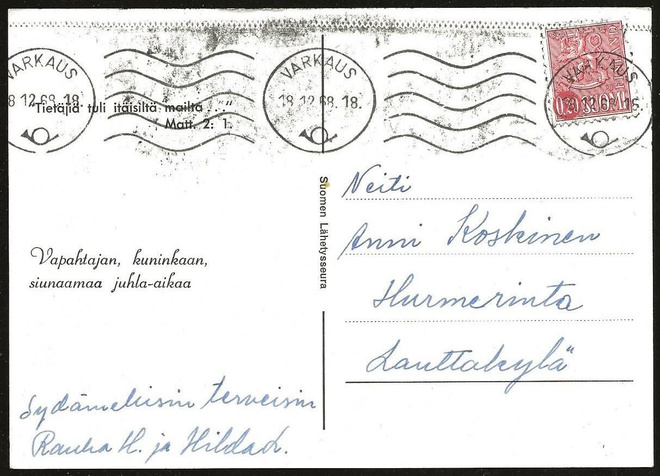 VARKAUS
18.12.68.18.
VARKAUS
18.12.68.18.
VARKAUS
0,20 SUOMI
"Tietäjiä tuli itäisiltä mailta ..."
Matt. 2: 1.
Suomen Lähetysseura
Vapahtajan, kuninkaan,
siunaamaa juhla-aikaa
Neiti
Anni Koskinen
Hurmerinta
Lauttakylä
Sydämellisin terveisin
Rauha H. ja